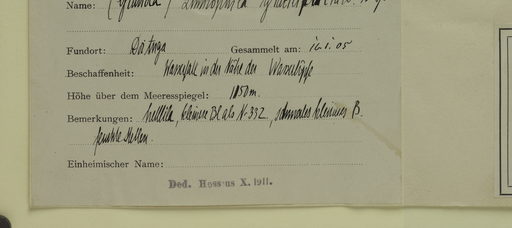 Name: Limnophila
Fundort: Gesammelt am: 16.1.05
Beschaffenheit: Wasserfälle in der Nähe der
Höhe über dem Meeresspiegel: 1850 m.
Bemerkungen: helllila, kleinere Bl als N. 332, schmales kleineres B.
feuchte Stellen
Einheimischer Name:
Ded. Hosseus X. 1911.